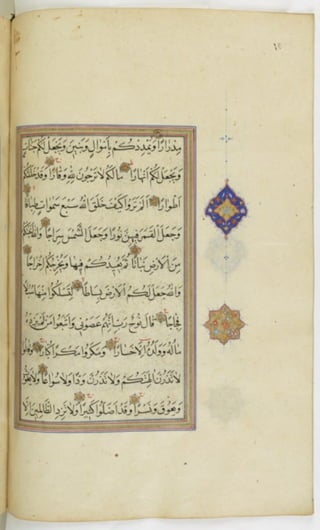 ١٥
مِدْرَارًا وَيُمْدِدْكُمْ بِأَمْوَالٍ وَبَنِينَ وَيَجْعَلْ لَكُمْ جَنَّاتٍ
وَيَجْعَلْ لَكُمْ أَنْهَارًا مَا لَكُمْ لَا تَرْجُونَ لِلَّهِ وَقَارًا وَقَدْ خَلَقَكُمْ
أَطْوَارًا أَلَمْ تَرَوْا كَيْفَ خَلَقَ اللَّهُ سَبْعَ سَمَوَاتٍ طِبَاقًا
وَجَعَلَ الْقَمَرَ فِيهِنَّ نُورًا وَجَعَلَ الشَّمْسَ سِرَاجًا وَاللَّهُ أَنْبَتَكُمْ
مِنَ الْأَرْضِ نَبَاتًا ثُمَّ يُعِيدُكُمْ فِيهَا وَيُخْرِجُكُمْ إِخْرَاجًا
وَاللَّهُ جَعَلَ لَكُمُ الْأَرْضَ بِسَاطًا لِتَسْلُكُوا مِنْهَا سُبُلًا
فِجَاجًا قَالَ نُوحٌ رَبِّ إِنَّهُمْ عَصَوْنِي وَاتَّبَعُوا مَنْ لَمْ يَزِدْهُ
مَالُهُ وَوَلَدُهُ إِلَّا خَسَارًا وَمَكَرُوا مَكْرًا كُبَّارًا وَقَالُوا
لَا تَذَرُنَّ آلِهَتَكُمْ وَلَا تَذَرُنَّ وَدًّا وَلَا سُوَاعًا وَلَا يَغُوثَ
وَيَعُوقَ وَنَسْرًا وَقَدْ أَضَلُّوا كَثِيرًا وَلَا تَزِدِ الظَّالِمِينَ إِلَّا